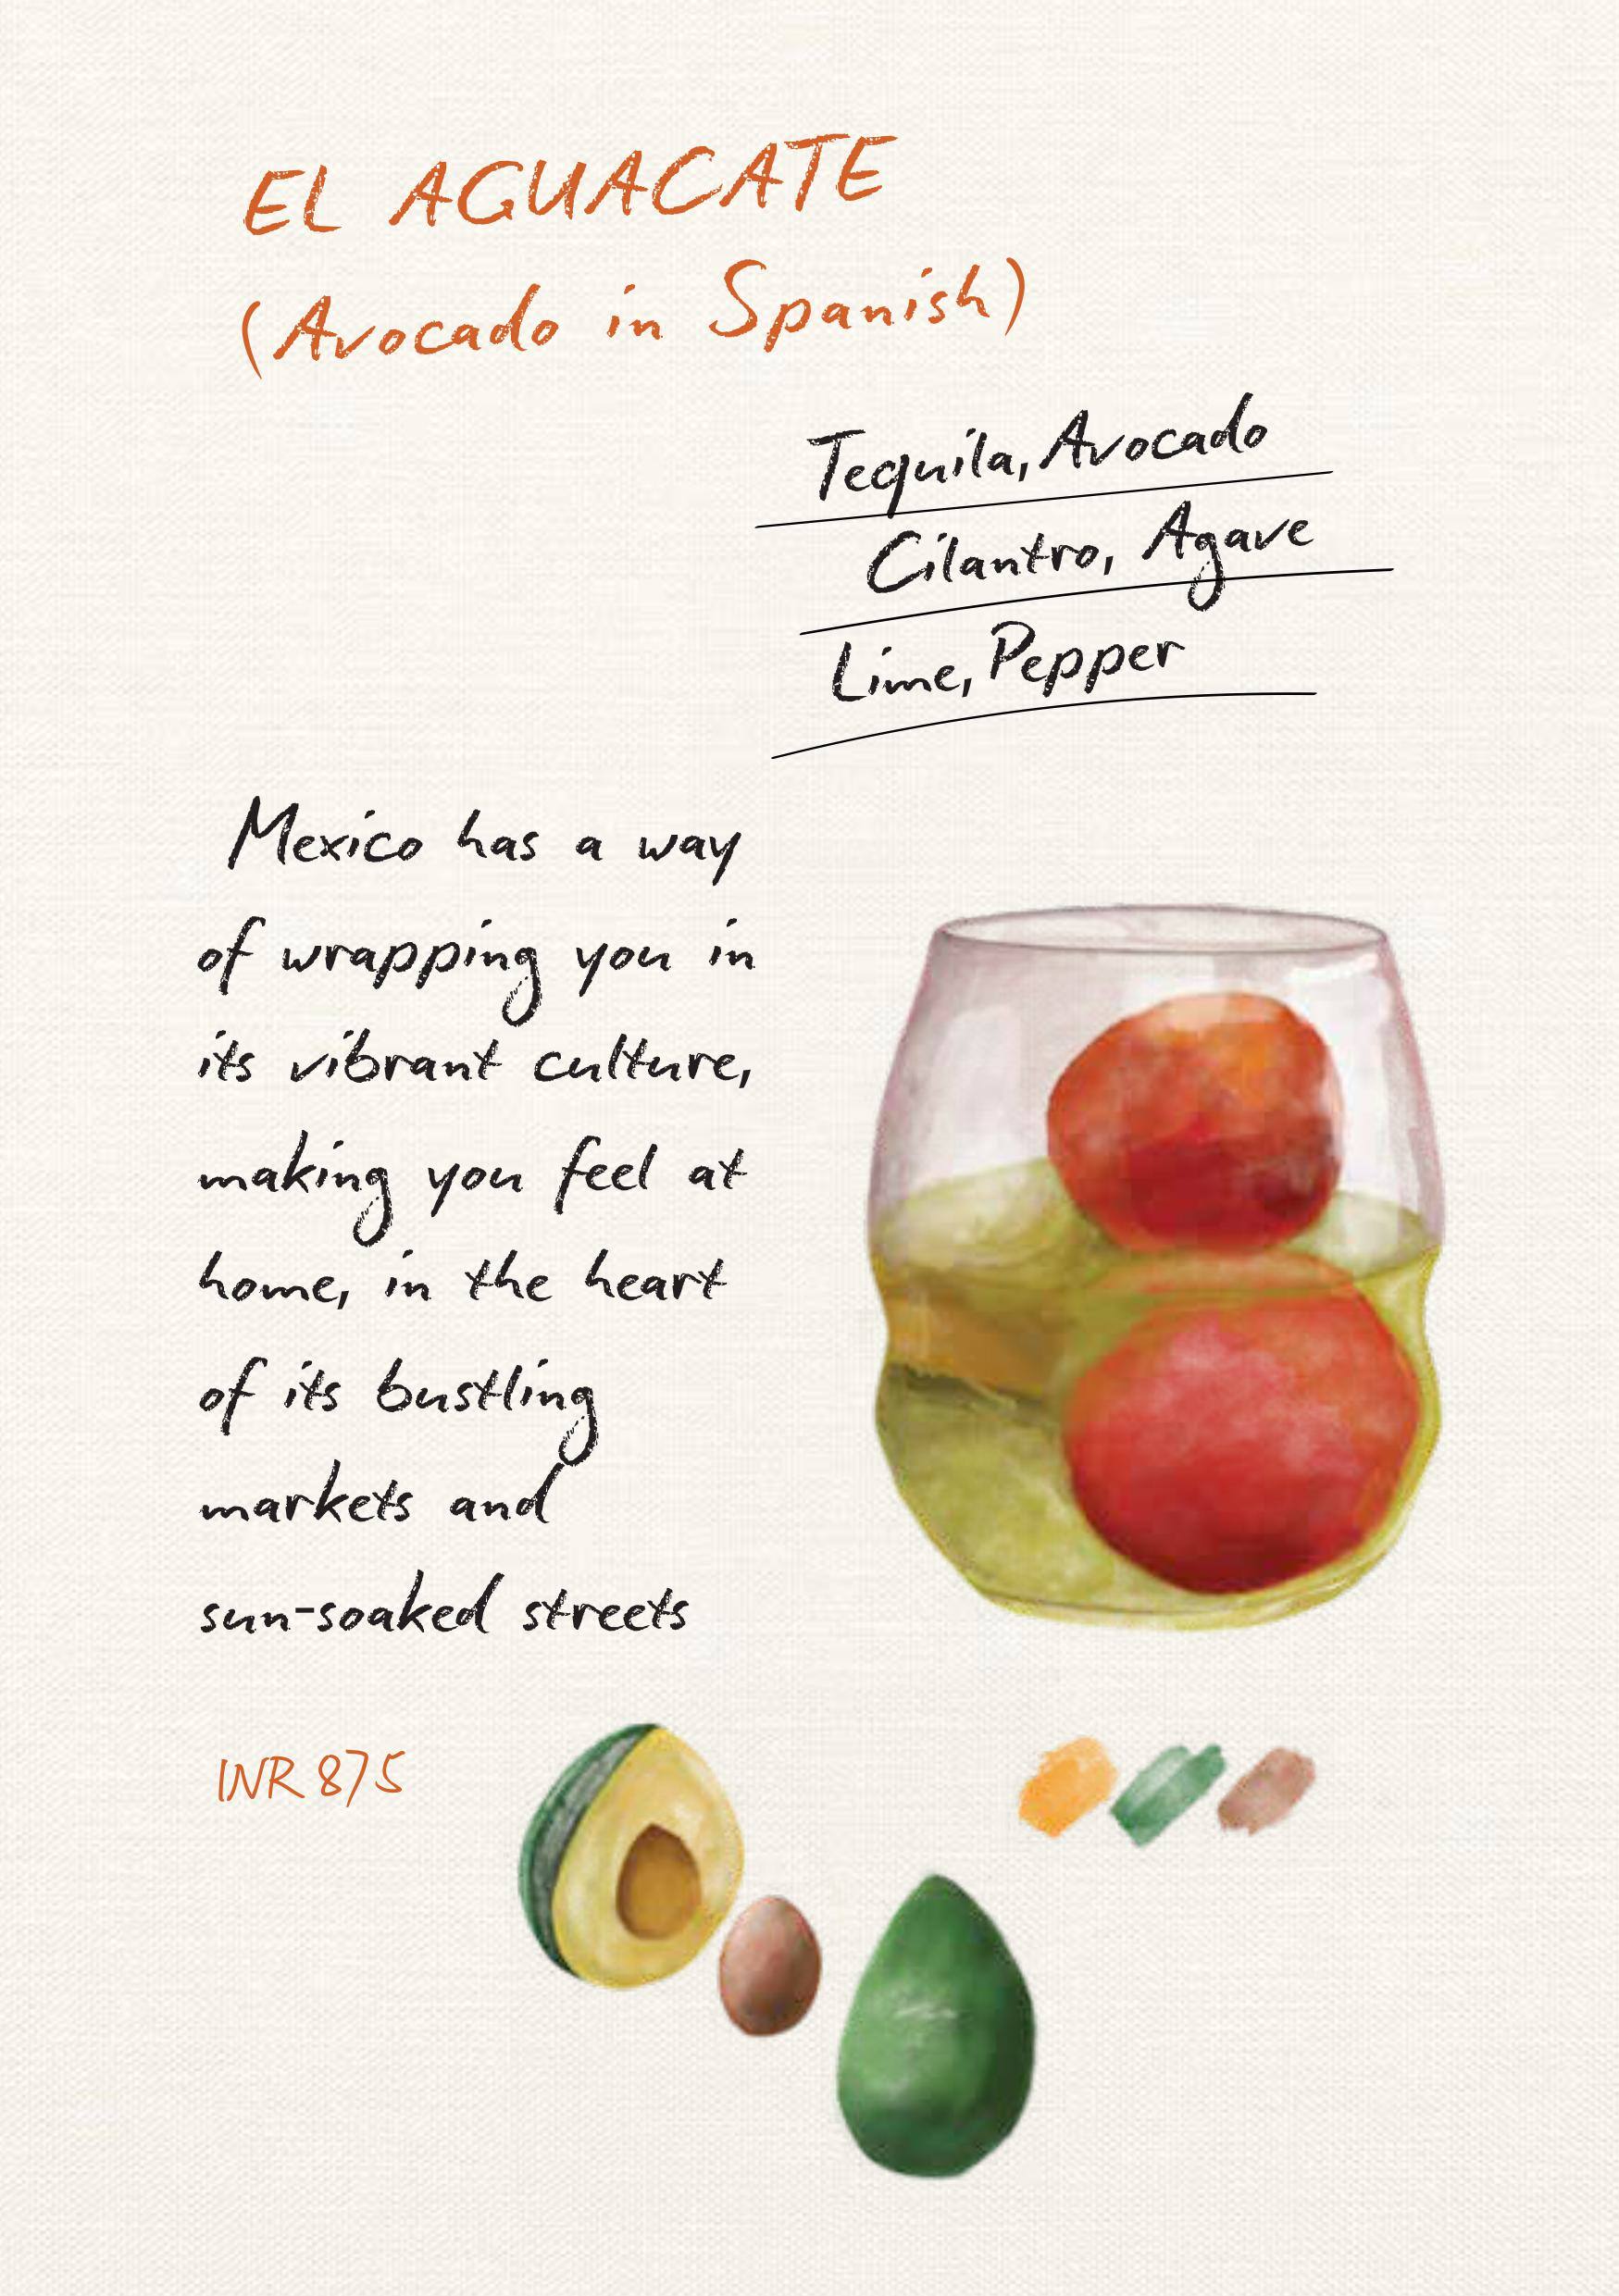 EL AGUACATE
(Avocado in Spanish)
Tequila, Avocado
Cilantro, Agave
Lime, Pepper
Mexico has a way
of wrapping you in
its vibrant culture,
making you feel at
home, in the heart
of its bustling
markets and
sun-soaked streets
INR 875